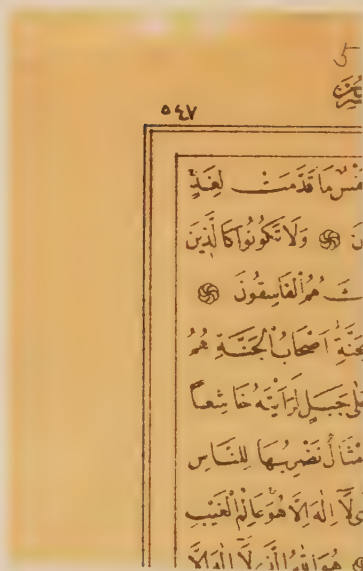 ٥٤٧
مَا قَدَّمَتْ لِغَدٍ
وَلَا تَكُونُوا كَالَّذِينَ
هُمُ الْفَاسِقُونَ
اَصْحَابُ الْجَنَّةِ هُمُ
جَبَلٍ لَرَاَيْتَهُ خَاشِعاً
نَضْرِبُهَا لِلنَّاسِ
لَا اِلٰهَ اِلَّا هُوَ عَالِمُ الْغَيْبِ